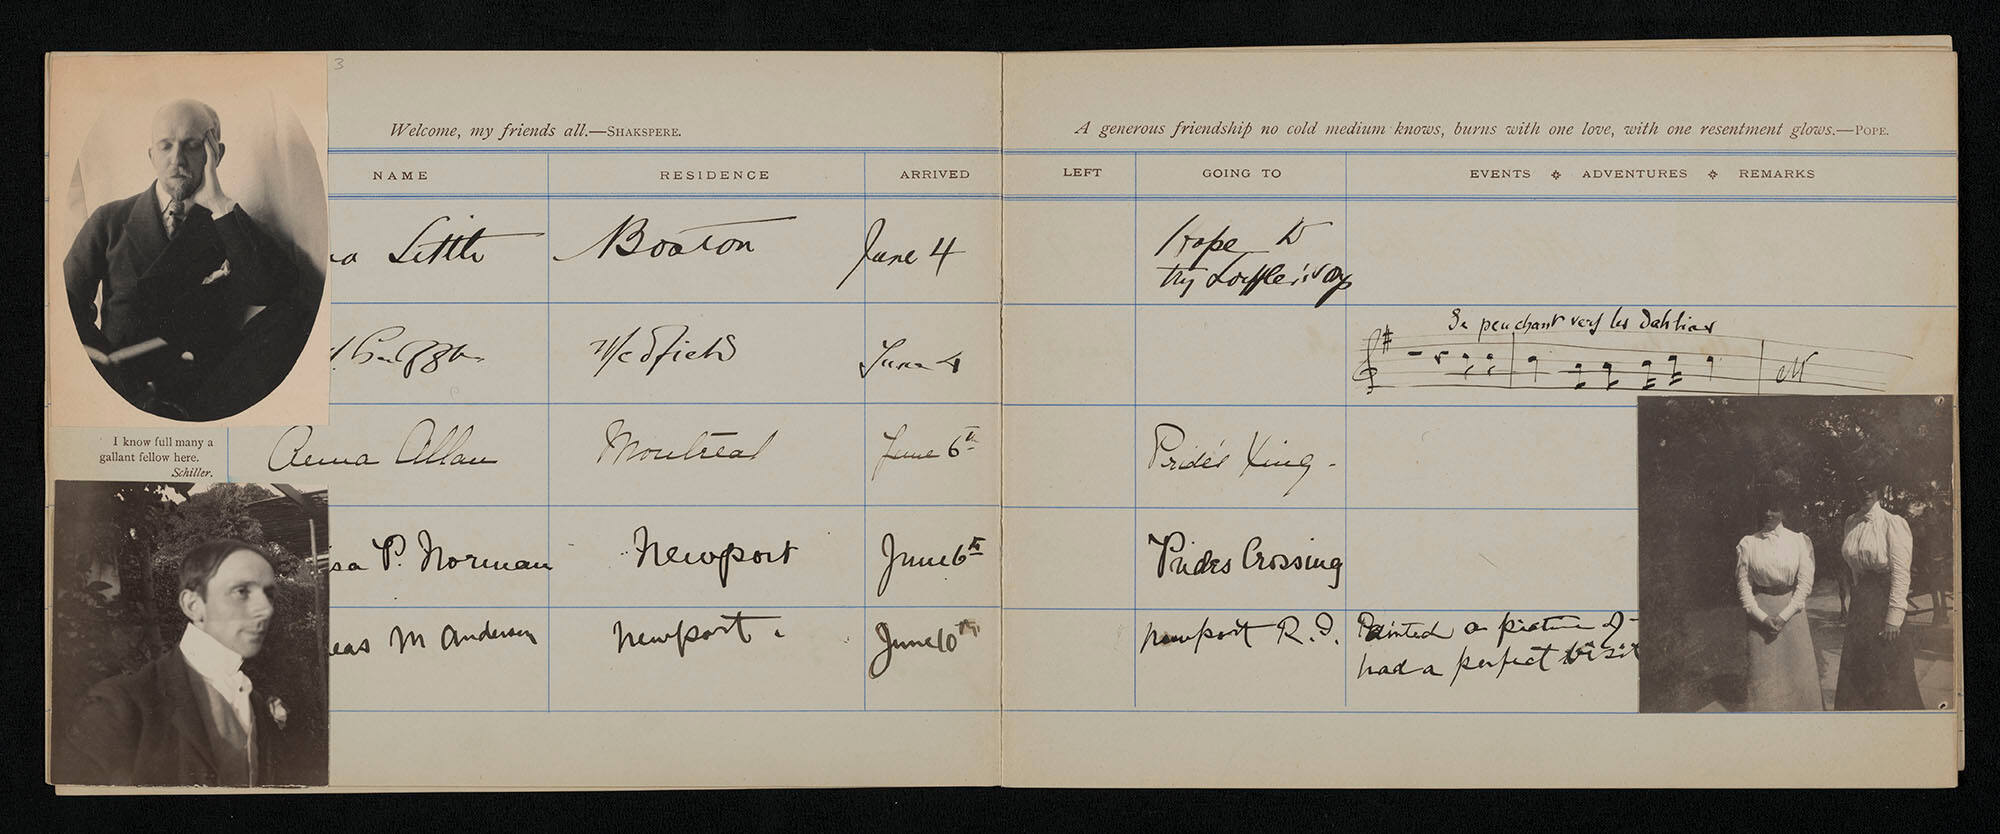 3
Welcome, my friends all.—SHAKSPERE.
A generous friendship no cold medium knows, burns with one love, with one resentment glows.—POPE.
NAME RESIDENCE ARRIVED LEFT GOING TO EVENTS ADVENTURES REMARKS
Little Boston June 4 Hope to
try Loeffler's
Se penchant vers les dahlias
Medfield June 4
I know full many a
gallant fellow here.
Schiller.
Anna Allan Montreal June 6th Pride's Xing.
P. Norman Newport June 6th Prides Crossing
M Andersen Newport. June 10th Newport R.I. Painted a picture of
had a perfect visit